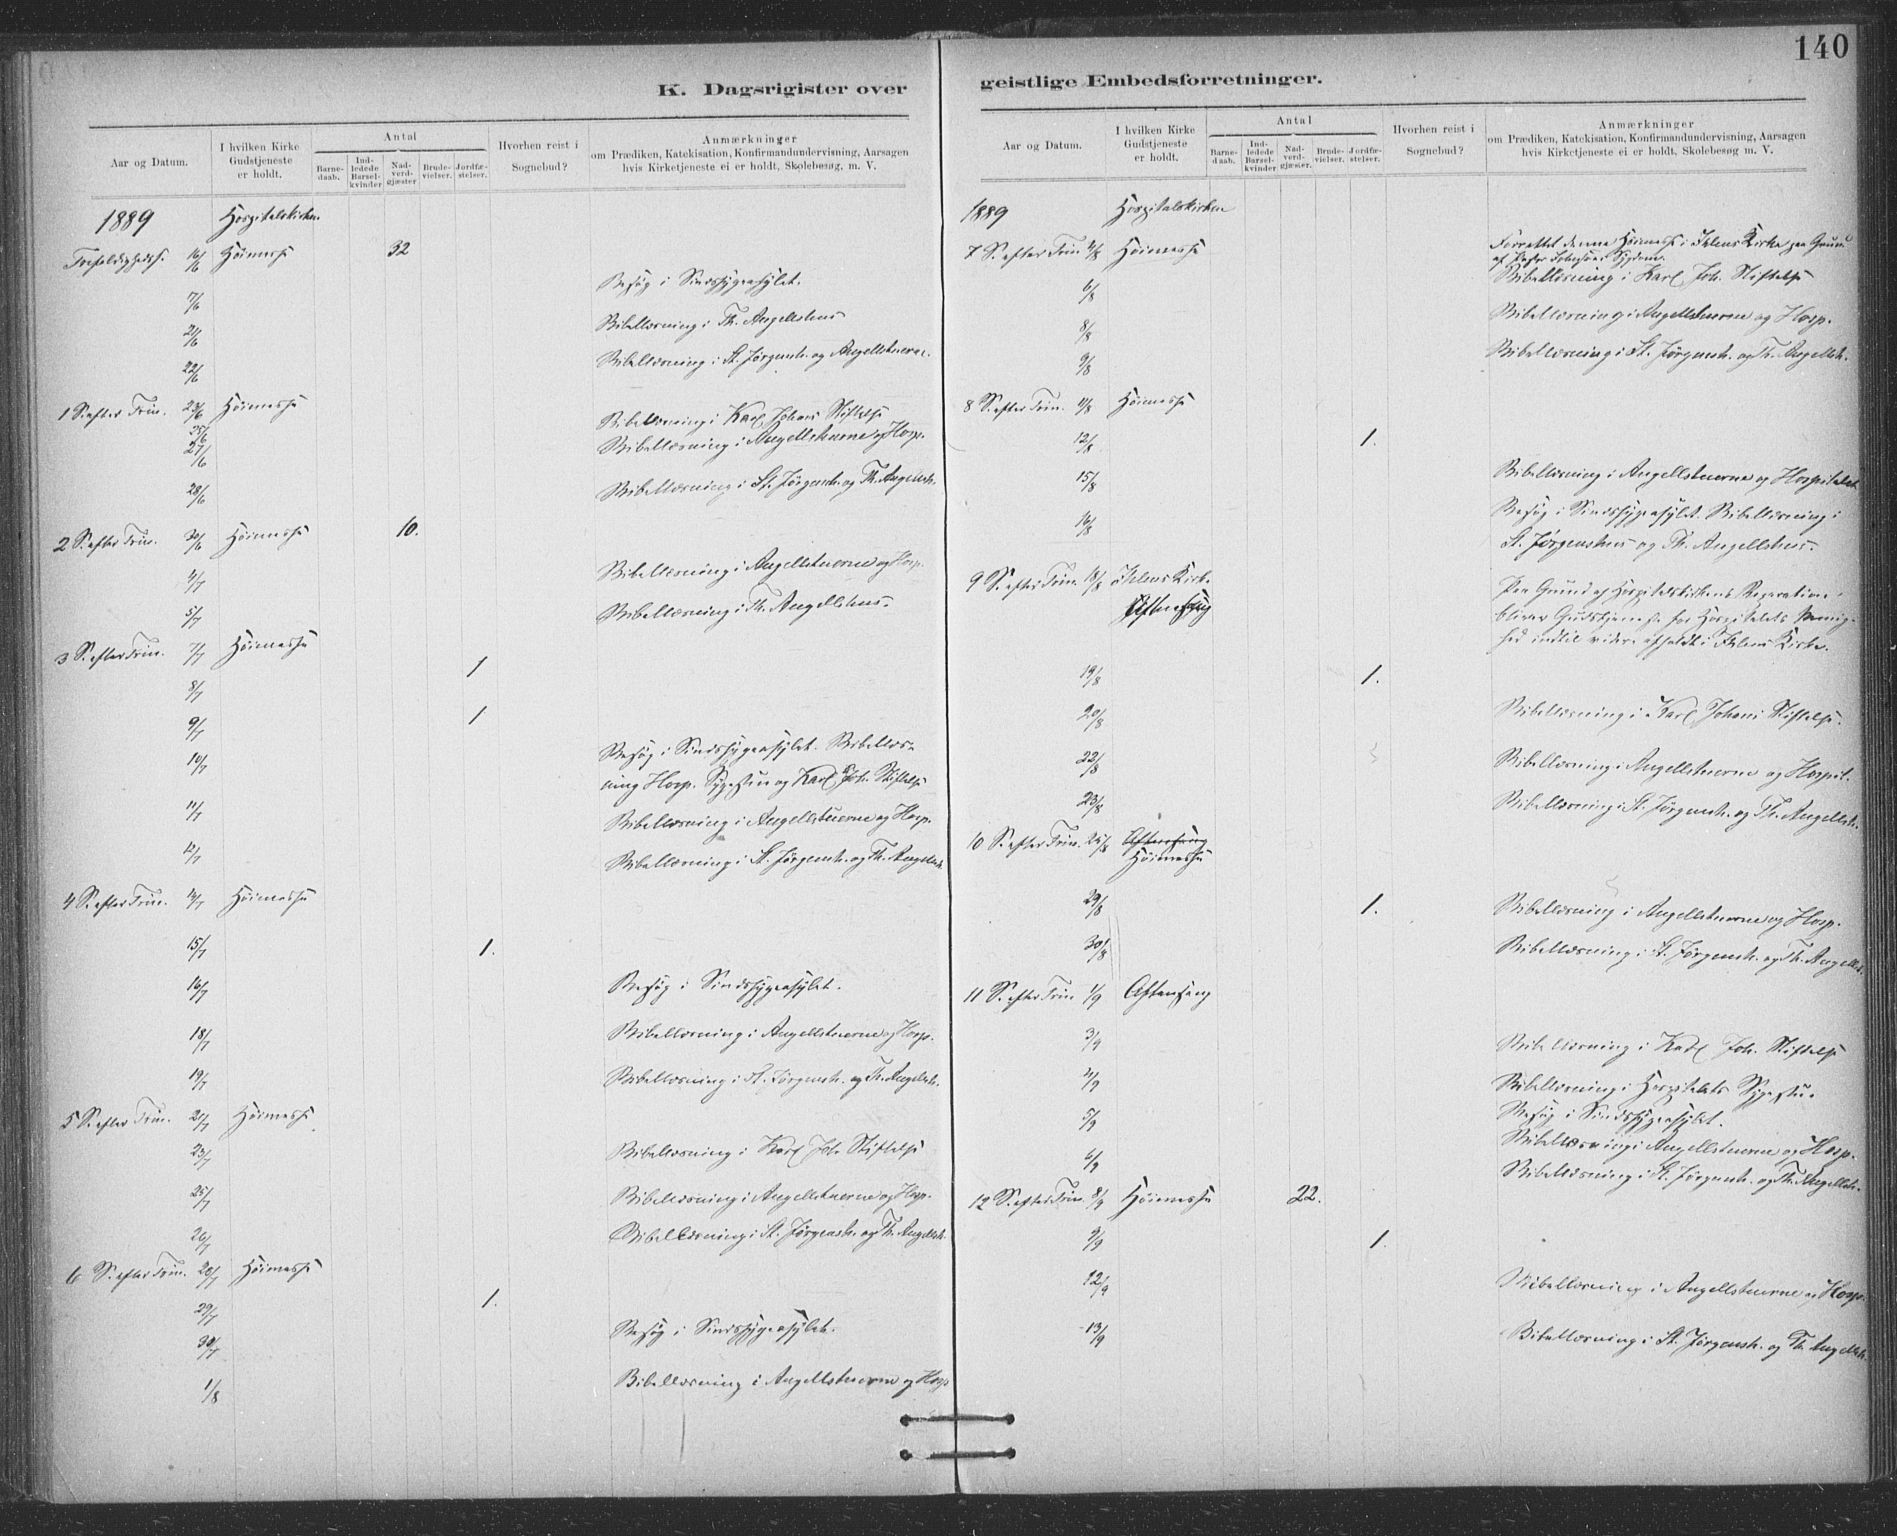 140
K. Dagsrigister over
Aar og Datum.
I hvilken Kirke Gudstjeneste er holdt.
Antal
Barne-daab.
Ind-ledede Barsel-kvinder
Nad-verd-gjæster
Brude-vielser.
Jordfæ-stelser.
Hvorhen reist i Sognebud?
Anmærkninger
om Prædiken, Katekisation, Konfirmandundervisning, Aarsagen
hvis Kirketjeneste ei er holdt, Skolebesøg, m. V.
1889 Hospitalskirken
Trefoldighedsf. 16/6 Høimesse 32
Besøg i Sindssygeasylet.
7/6
Bibellæsning i Th. Angellshus
21/6
Bibellæsning i St. Jørgensh. og Angellstuerne.
22/6
1 S. efter Trin. 23/6 Høimesse
25/6 Bibellæsning i Karl Johans Stiftelse
27/6 Bibellæsning i Angellstuerne og Hosp.
28/6 Bibellæsning i St. Jørgensh. og Th. Angellsh.
2 S. efter Trin. 30/6 Høimesse 10.
4/7 Bibellæsning i Angellstuerne og Hosp.
5/7 Bibellæsning i Th. Angellshus.
3 S. efter Trin. 7/7 Høimesse
8/7 1
9/7 1
10/7 Besøg i Sindssygeasylet. Bibellæs-
ning Hosp. Sygestue og Karl Joh. Stiftelse
11/7 Bibellæsning i Angellstuerne og Hosp.
12/7 Bibellæsning i St. Jørgensh. og Th. Angellsh.
4 S. efter Trin. 14/7 Høimesse
15/7 1.
16/7 Besøg i Sindssygeasylet.
18/7 Bibellæsning i Angellstuerne og Hosp.
19/7 Bibellæsning i St. Jørgensh. og Th. Angellsh.
5 S. efter Trin. 21/7 Høimesse
23/7 Bibellæsning i Karl Joh. Stiftelse
25/7 Bibellæsning i Angellstuerne og Hosp.
26/7 Bibellæsning i St. Jørgensh. og Th. Angellsh.
6 S. efter Trin. 28/7 Høimesse
29/7 1.
30/7 Besøg i Sindssygeasylet.
1/8 Bibellæsning i Angellstuerne og Hosp
geistlige Embedsforretninger.
Aar og Datum.
I hvilken Kirke Gudstjeneste er holdt.
Antal
Barne-daab.
Ind-ledede Barsel-kvinder
Nad-verd-gjæster.
Brude-vielser.
Jordfæ-stelser.
Hvorhen reist i Sognebud?
Anmærkninger
om Prædiken, Katekisation, Konfirmandundervisning, Aarsagen
hvis Kirketjeneste ei er holdt, Skolebesøg m. V.
1889 Hospitalskirken
7 S. efter Trin. 4/8 Høimesse Forrettet denne Høimesse i Ihlens Kirke paa Grund
af Pastor Sygdom.
6/8 Bibellæsning i Karl Joh. Stiftelse
8/8 Bibellæsning i Angellstuerne og Hosp.
9/8 Bibellæsning i St. Jørgensh. og Th. Angellsh.
8 S. efter Trin. 11/8 Høimesse
12/8 1.
15/8 Bibellæsning i Angellstuerne og Hospitalet
16/8 Besøg i Sindssygeasylet. Bibellæsning i
St. Jørgenshus og Th. Angellshus.
9 S. efter Trin. 18/8 Ihlens Kirke
Aftensang
Paa Grund af Hospitalskirkens Reparation
bliver Gudstjeneste for Hospitalets Menig-
hed indtil videre afholdt i Ihlens Kirke.
19/8 1.
20/8 Bibellæsning i Karl Johans Stiftelse.
22/8 Bibellæsning i Angellstuerne og Hospit.
23/8 Bibellæsning i St. Jørgensh. og Th. Angellsh.
10 S. efter Trin. 25/8 Aftensang
Høimesse
29/8 1. Bibellæsning i Angellstuerne og Hosp.
30/8 Bibellæsning i St. Jørgensh. og Th. Angellsh.
11 S. efter Trin 1/9 Aftensang
3/9 Bibellæsning i Karl Joh. Stiftelse
4/9 Bibellæsning i Hospitalets Sygestue
5/9 Besøg i Sindssygeasylet.
Bibellæsning i Angellstuerne og Hosp.
6/9 Bibellæsning i St. Jørgensh. og Th. Angellsh.
12 S. efter Trin. 8/9 Høimesse 22.
9/9 1.
12/9 Bibellæsning i Angellstuerne og Hosp.
13/9 Bibellæsning i St. Jørgensh. og Th. Angellsh.